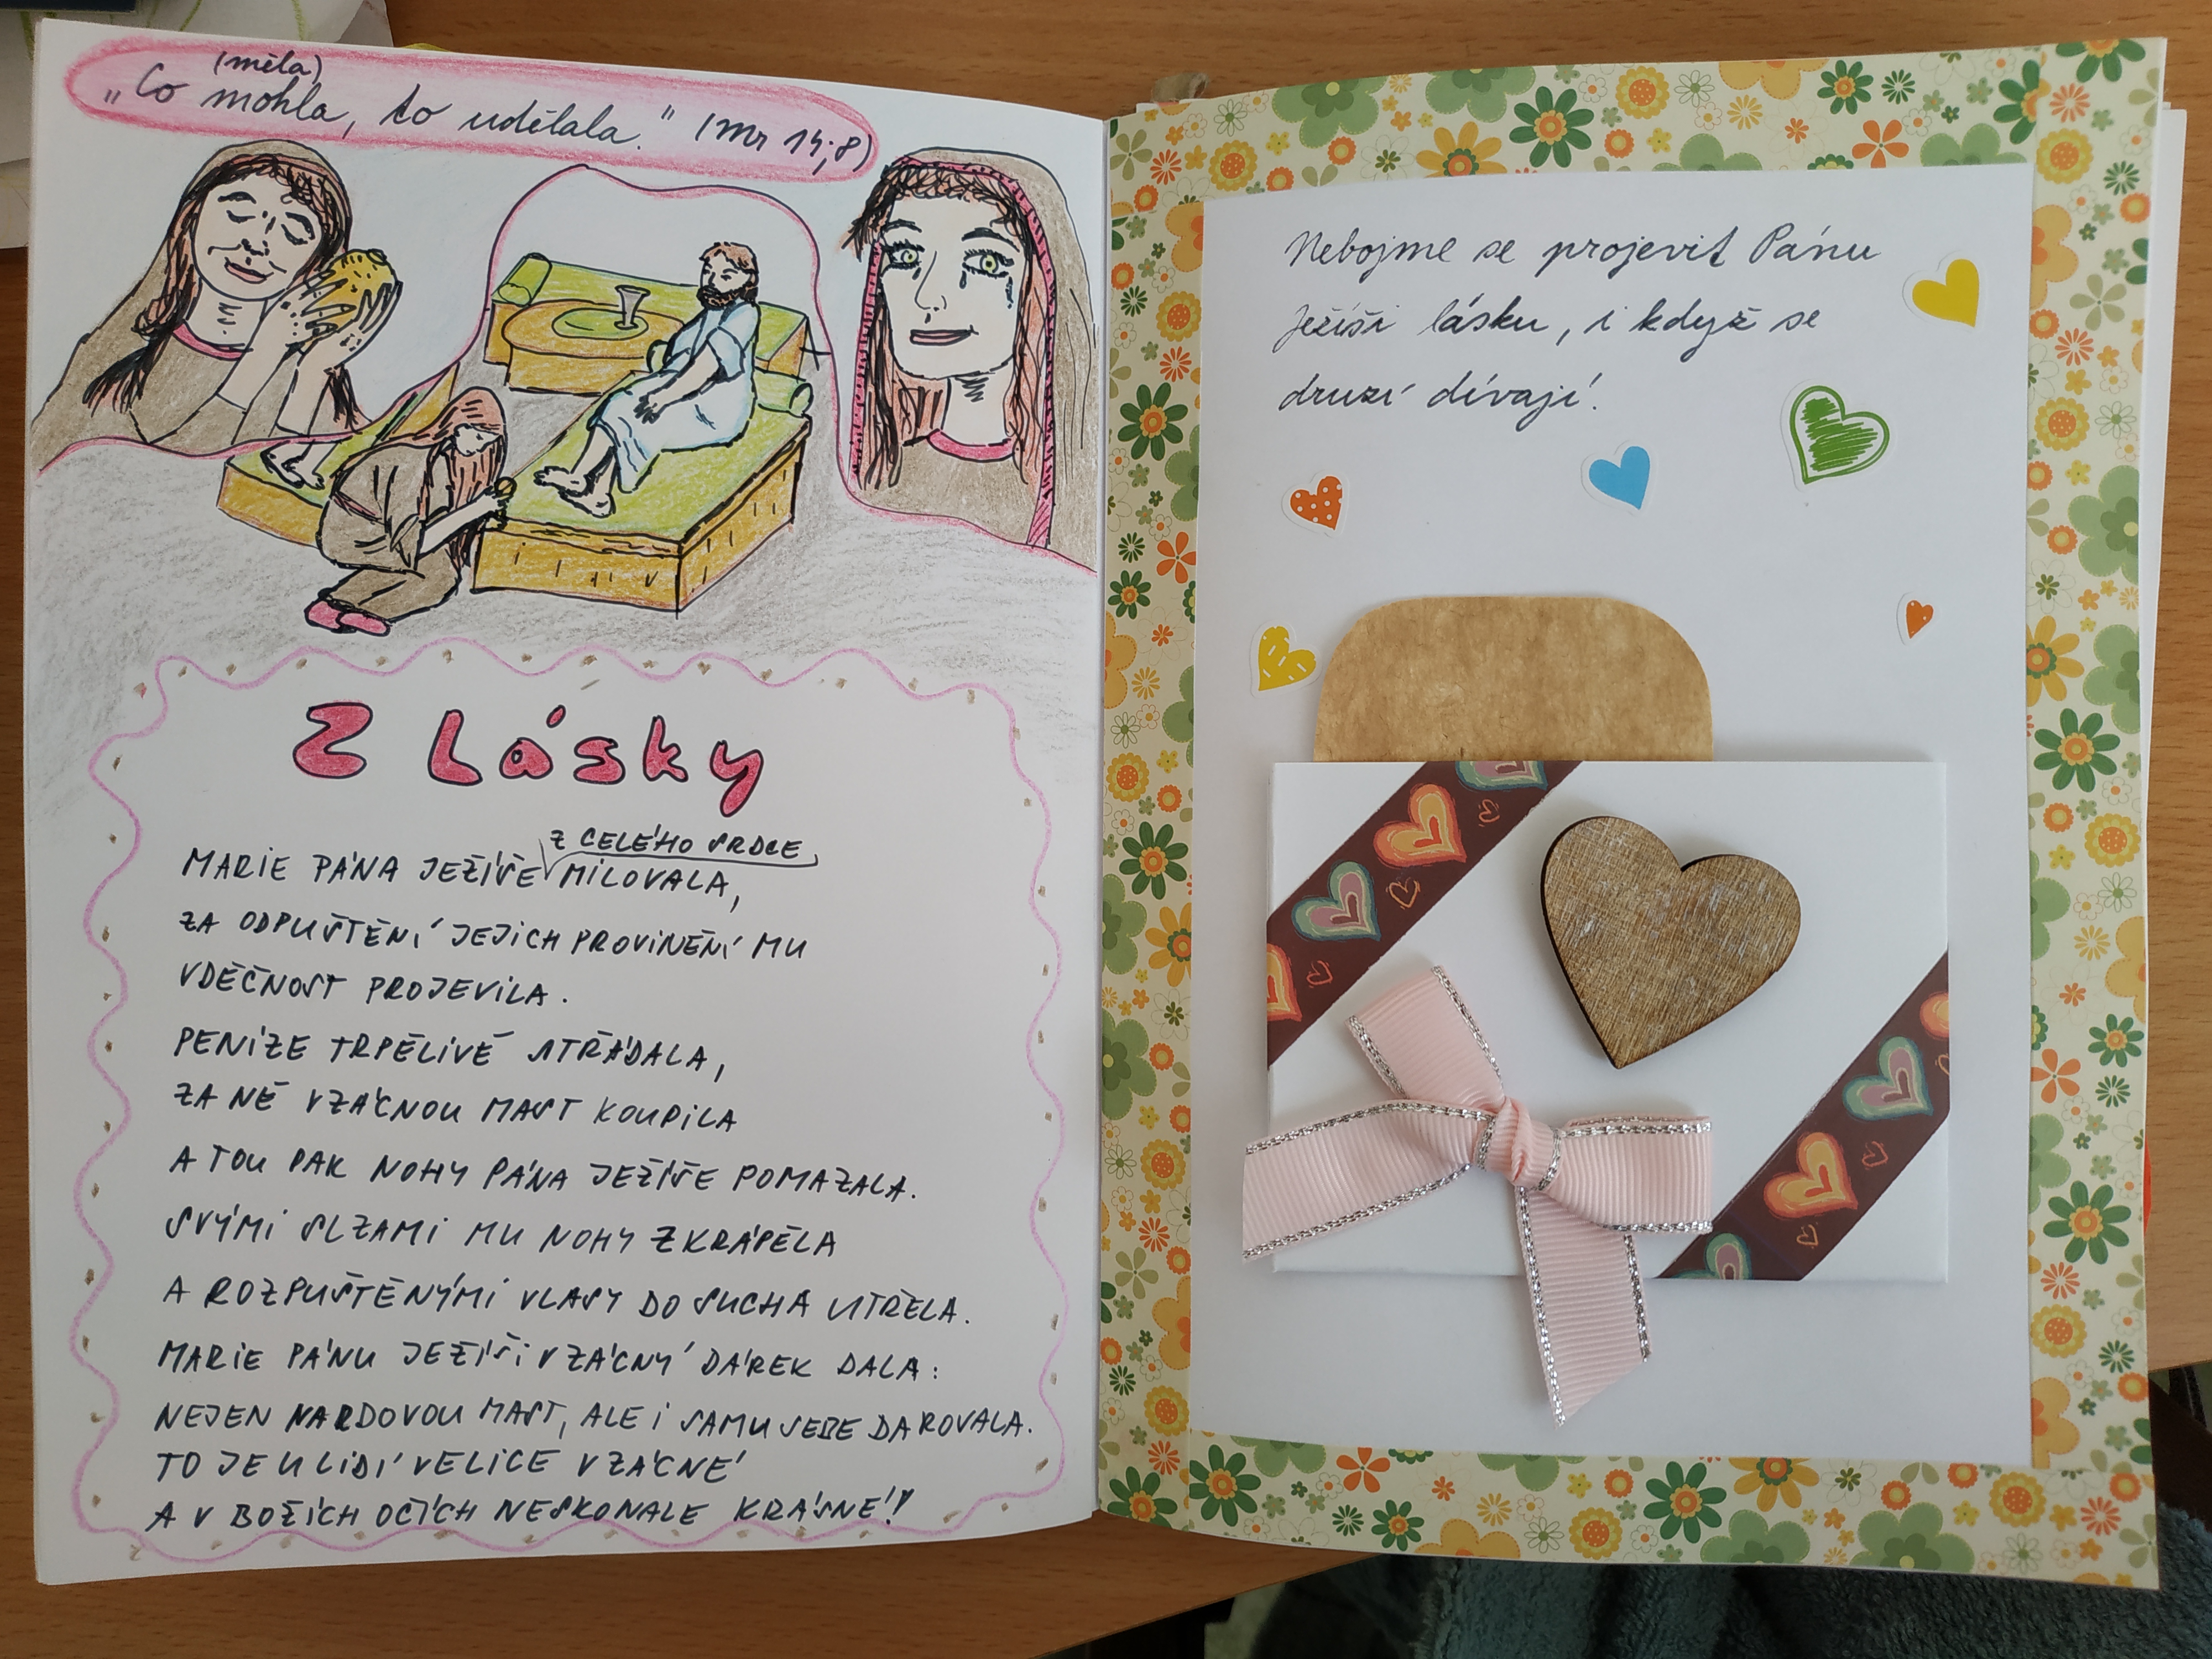 (měla)
„Co mohla, to udělala." (Mr 14;8)
Z Lásky
Z CELÉHO SRDCE
MARIE PÁNA JEŽÍŠE MILOVALA,
ZA ODPUŠTĚNÍ JEJICH PROVINĚNÍ MU
VDĚČNOST PROJEVILA.
PENÍZE TRPĚLIVĚ STŘÁDALA,
ZA NĚ VZÁCNOU MAST KOUPILA
A TOU PAK NOHY PÁNA JEŽÍŠE POMAZALA.
SVÝMI SLZAMI MU NOHY ZKRÁPĚLA
A ROZPUŠTĚNÝMI VLASY DO SUCHA UTŘELA.
MARIE PÁNU JEŽÍŠI VZÁCNÝ DÁREK DALA:
NEJEN NARDOVOU MAST, ALE I SAMU SEBE DAROVALA.
TO JE U LIDÍ VELICE VZÁCNÉ
A V BOŽÍCH OČÍCH NESKONALE KRÁSNÉ!
Nebojme se projevit Pánu
Ježíši lásku, i když se
druzí dívají.